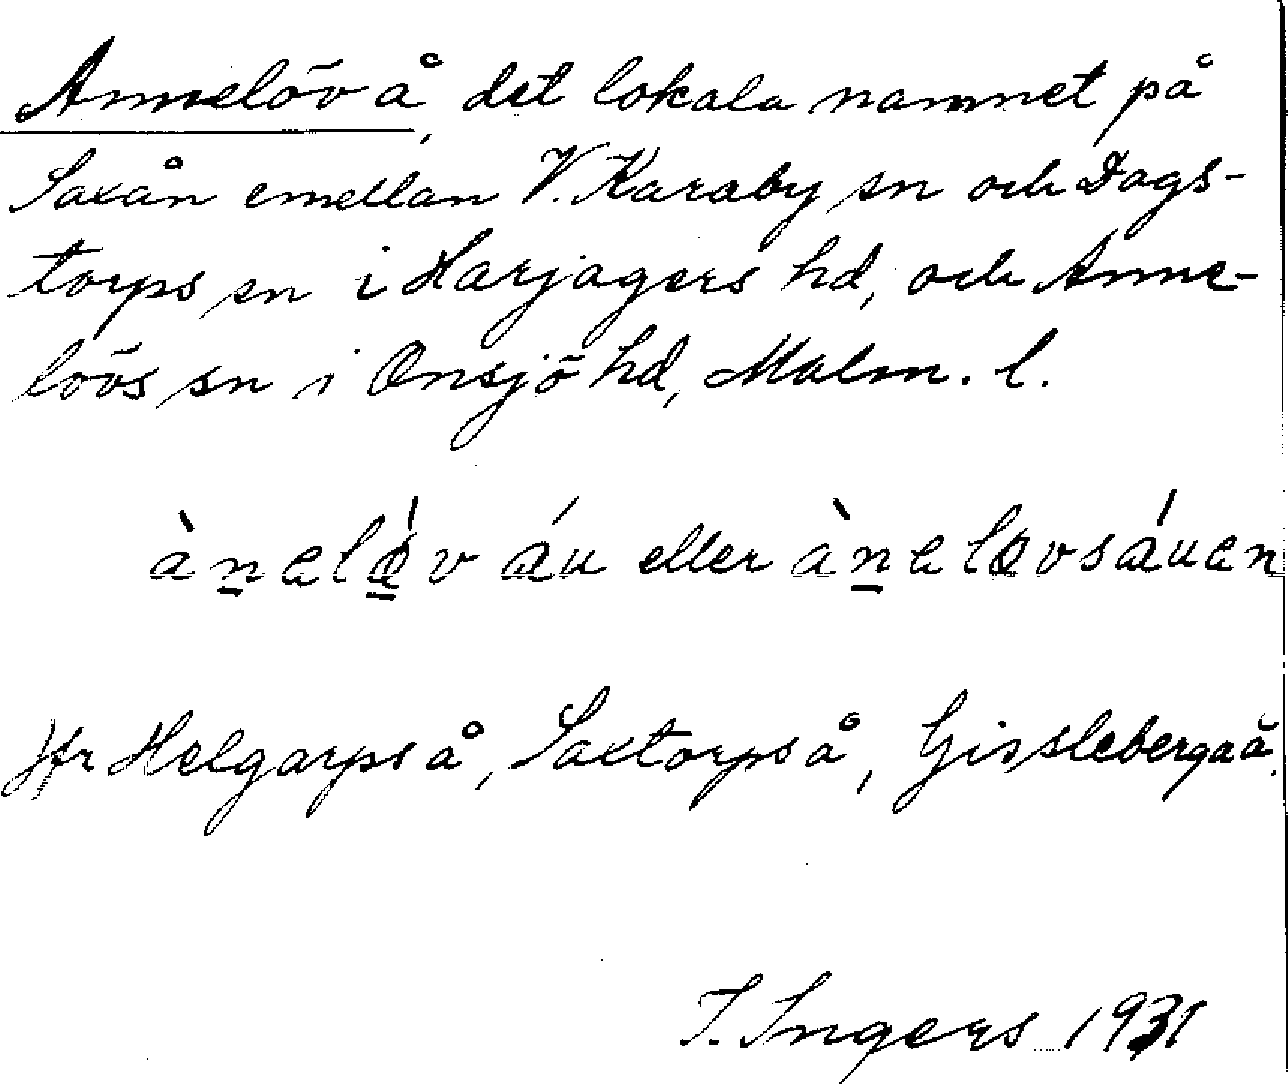 Annelöv å, det lokala namnet på
Saxån emellan V. Karaby sn och Dags-
torps sn i Harjagers hd, och Anne-
lövs sn i Onsjö hd, Malm. l.
eller
Jfr Helgarps å, Saxtorps å, Gisslebergaå.
I. Ingers 1931